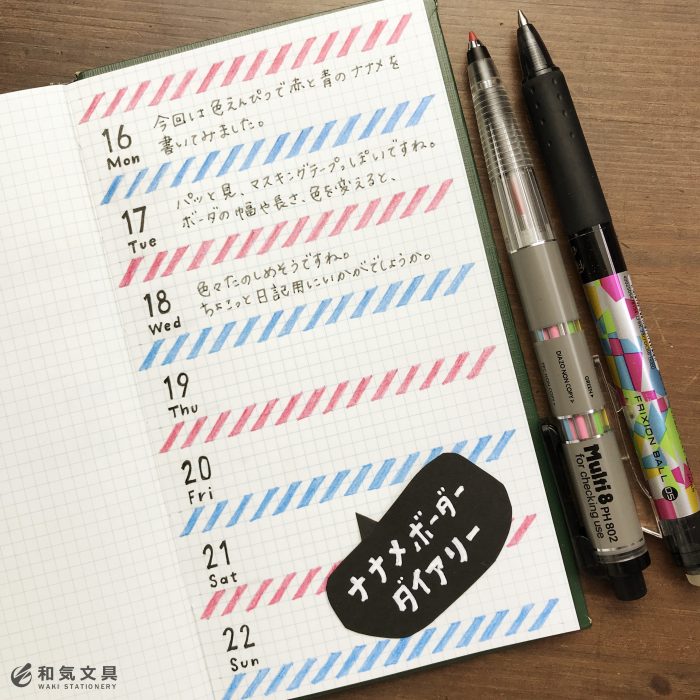 16
Mon
今回は色えんぴつで赤と青のナナメを
書いてみました。
17
Tue
パッと見、マスキングテープっぽいですね。
ボーダの幅や長さ、色を変えると、
18
Wed
色々たのしめそうですね。
ちょこっと日記用にいかがでしょうか。
19
Thu
20
Fri
21
Sat
22
Sun
ナナメボーダー
ダイアリー
DIAZO NON COPY>
GREEN>
Multi 8 PH 802
for checking use
FRIXION BALL 05
和気文具
WAKI STATIONERY